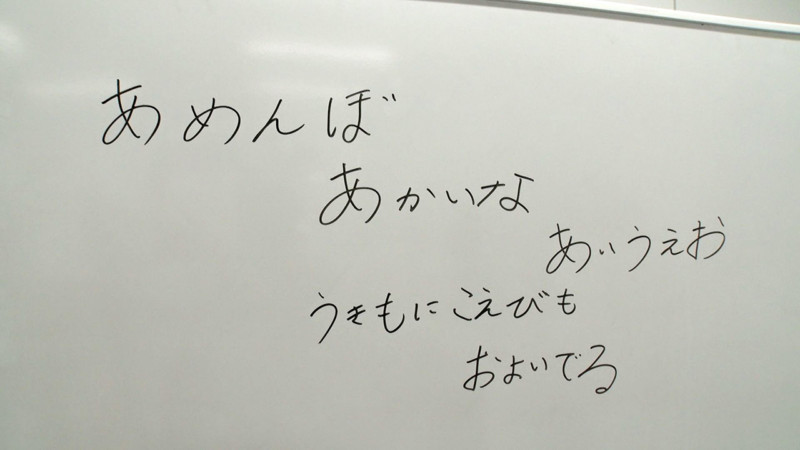 あめんぼ
あかいな
あいうえお
うきもにこえびも
およいでる